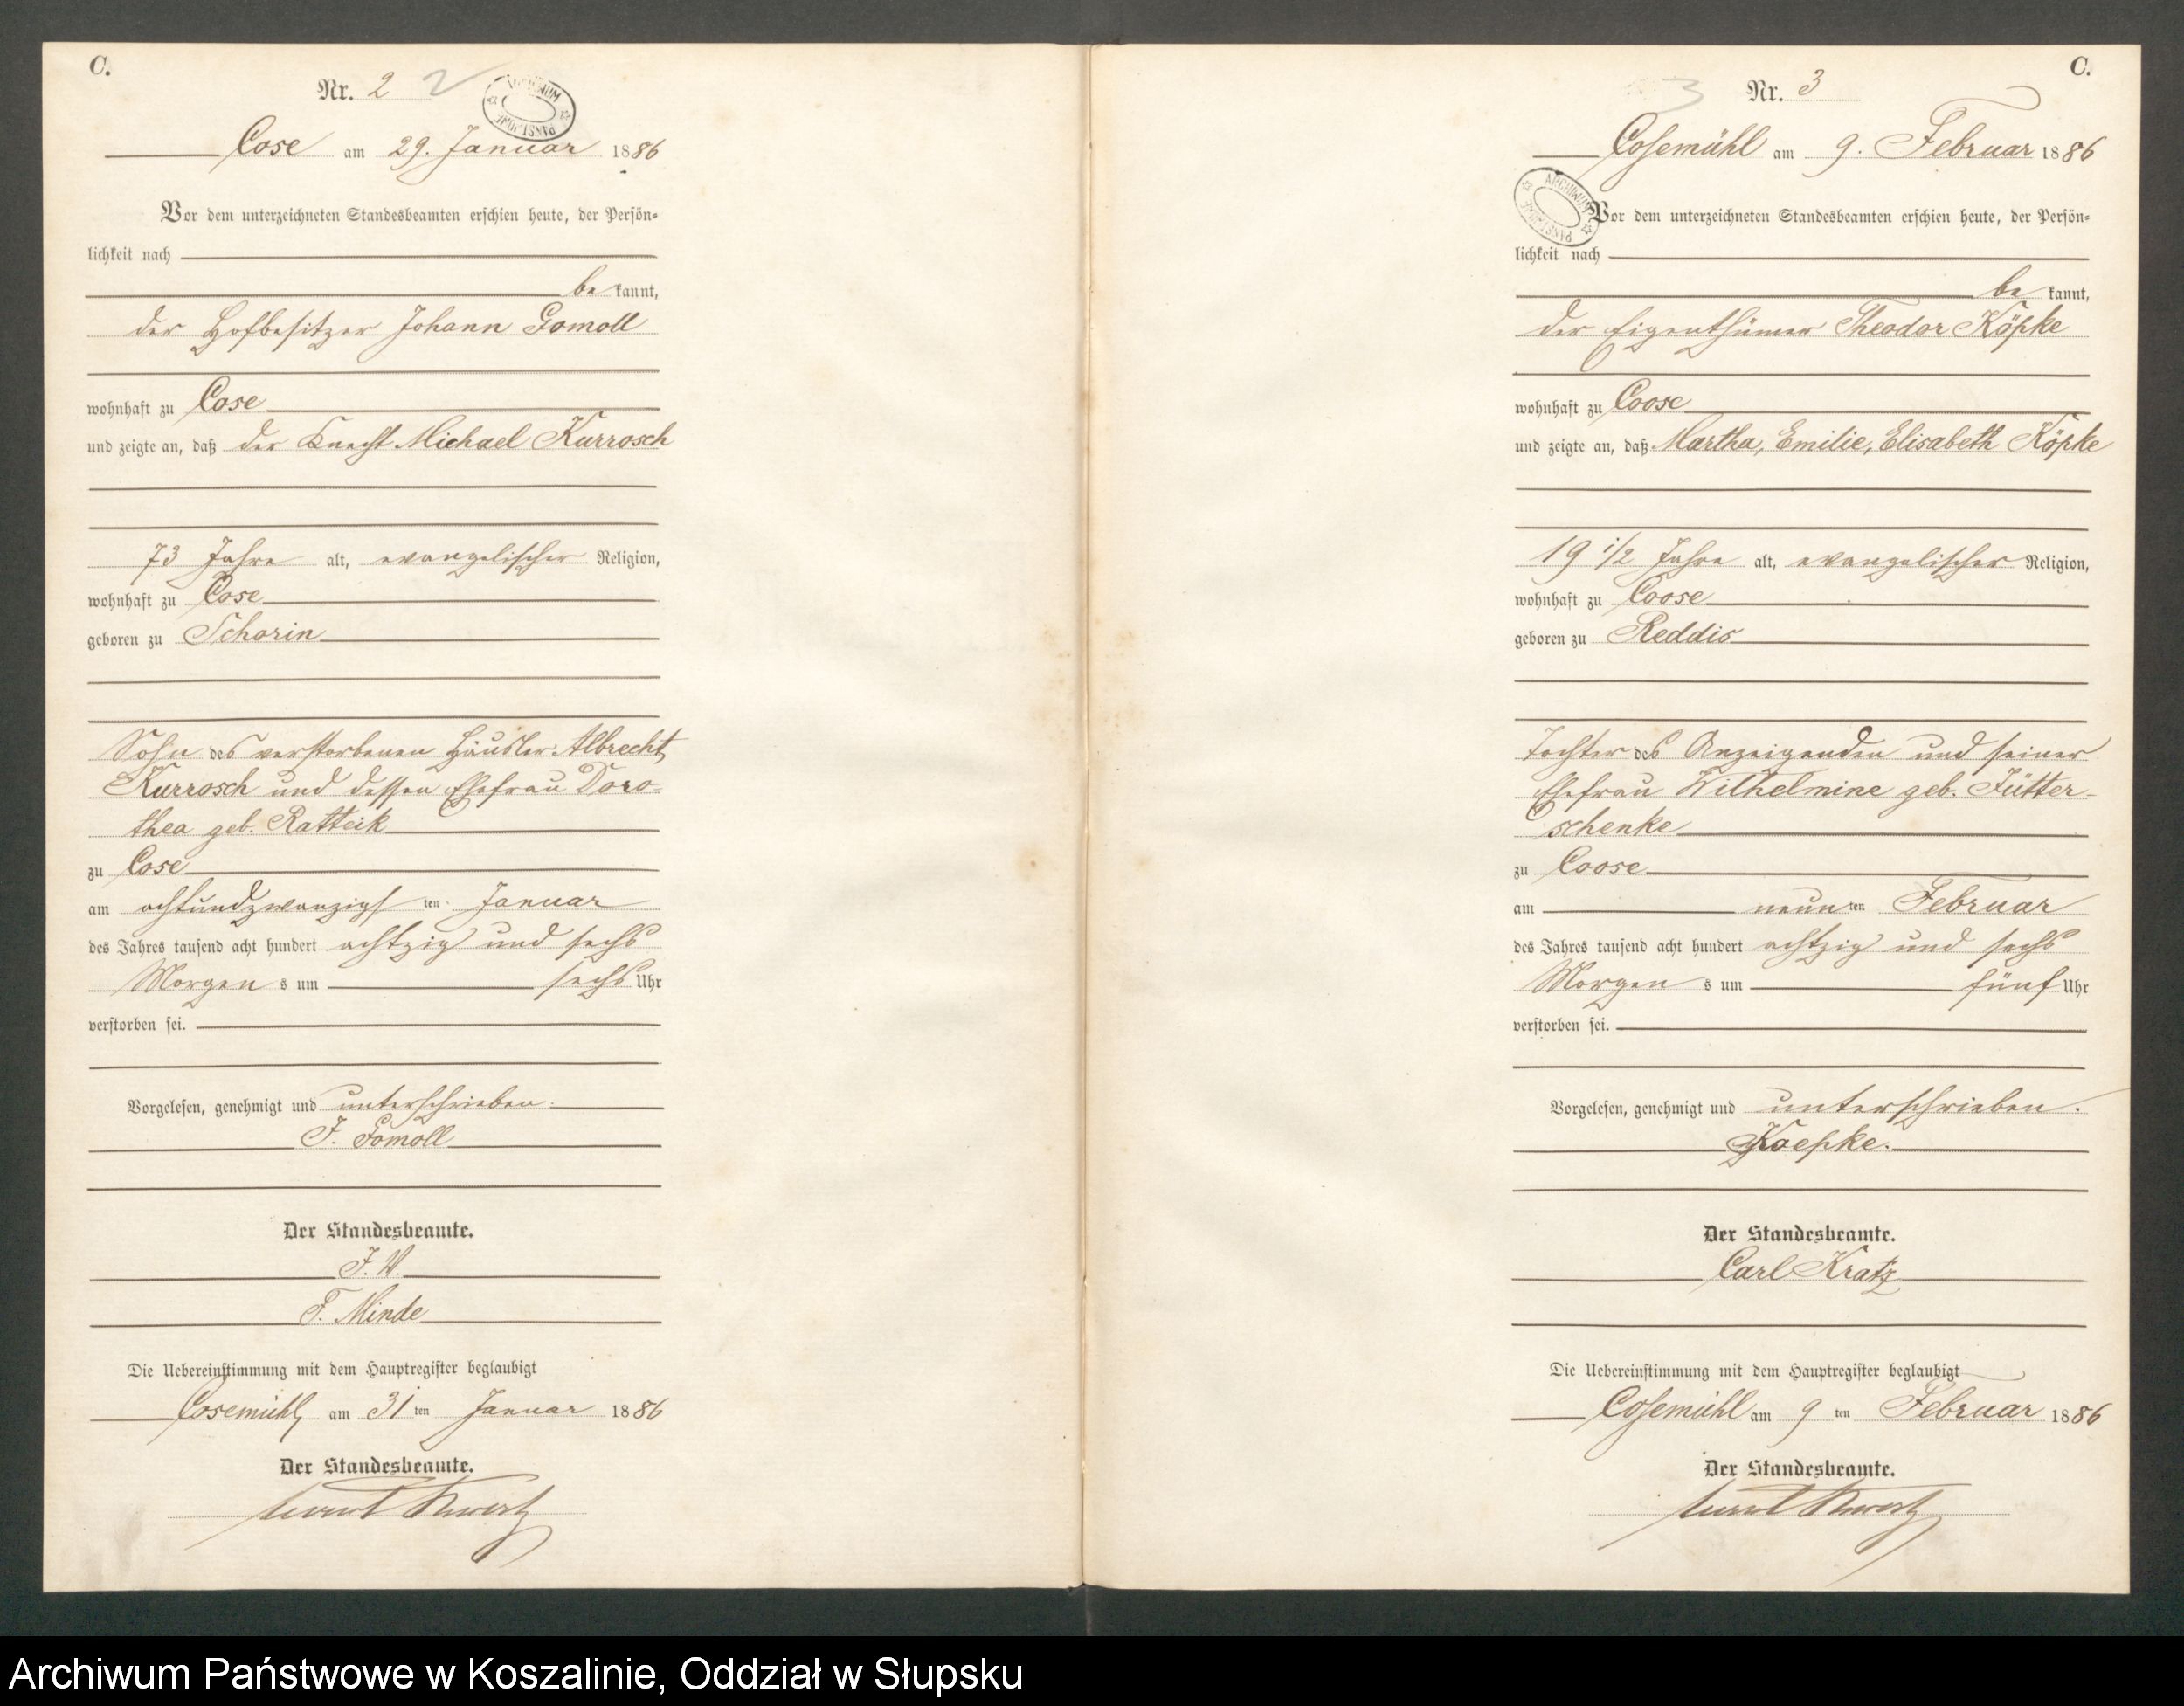 C.
Nr. 2 2
ARCHIWUM PAŃSTWOWE
Cose am 29. Januar 1886
Vor dem unterzeichneten Standesbeamten erschien heute, der Persön-
lichkeit nach
be kannt,
der Hofbesitzer Johann Gomoll
wohnhaft zu Cose
und zeigte an, daß der Knecht Michael Kurrosch
73 Jahre alt, evangelischer Religion,
wohnhaft zu Cose
geboren zu Schorin
Sohn des verstorbenen Häusler Albrecht
Kurrosch und dessen Ehefrau Doro-
thea geb. Ratteik
zu Cose
am achtundzwanzigs ten Januar
des Jahres tausend acht hundert achtzig und sechs
Morgen s um sechs Uhr
verstorben sei.
Vorgelesen, genehmigt und unterschrieben.
J. Gomoll
Der Standesbeamte.
J. V.
F. Minde
Die Uebereinstimmung mit dem Hauptregister beglaubigt
Cosemühl, am 31 ten Januar 1886
Der Standesbeamte.
C.
3 Nr. 3
Cosemühl am 9. Februar 1886
ARCHIWUM PAŃSTWOWE
Vor dem unterzeichneten Standesbeamten erschien heute, der Persön-
lichkeit nach
be kannt,
der Eigenthümer Theodor Köpke
wohnhaft zu Coose
und zeigte an, daß Martha, Emilie, Elisabeth Köpke
19 1/2 Jahre alt, evangelischer Religion,
wohnhaft zu Coose
geboren zu Reddis
Tochter des Anzeigenden und seiner
Ehefrau Wilhelmine geb. Fütter-
schenke
zu Coose
am neun ten Februar
des Jahres tausend acht hundert achtzig und sechs
Morgen s um fünf Uhr
verstorben sei.
Vorgelesen, genehmigt und unterschrieben.
Koepke.
Der Standesbeamte.
Carl Kratz
Die Uebereinstimmung mit dem Hauptregister beglaubigt
Cosemühl am 9 ten Februar 1886
Der Standesbeamte.
Archiwum Państwowe w Koszalinie, Oddział w Słupsku